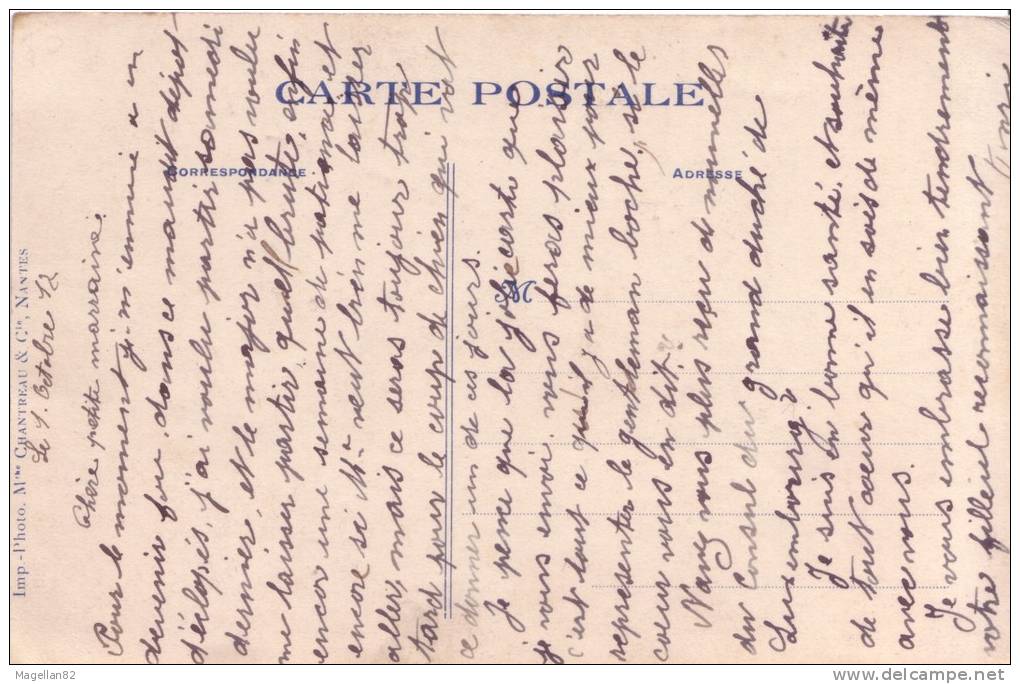 CARTE POSTALE
CORRESPONDANCE
ADRESSE
M
Imp.-Photo. Mlle CHANTREAU & Cie, NANTES
Le 9 Octobre 12
Chère petite marraine.
Pour le moment je m'ennuie a en
devenir fou, dans ce maudit dépôt
d'éclopés, j'ai voulu partir samedi
dernier, et le major n'a pas voulu
me laisser partir, quelle brute, enfin
encor une semaine de patience, et
encore si Mr veut bien me laisser
aller, mais ce seras toujour trop
tard pour le coup de chien qui vat
ce donner un de ces jours.
Je pense que la jolie carte que
je vous envoi, vous feras plaisir
c'est tout ce qu'il y a de mieux pour
representer le gentleman boche, si le
coeur vous en dit.
N'avez vous plus reçu de nouvelles
du Consul du grand duché de
Luxembourg?
Je suis en bonne santé, et souhaite
de tout coeur qu'il en sois de même
avec vous.
Je vous embrasse bien tendrement
votre filleul reconnaissant
Magellan82
delcampe.net